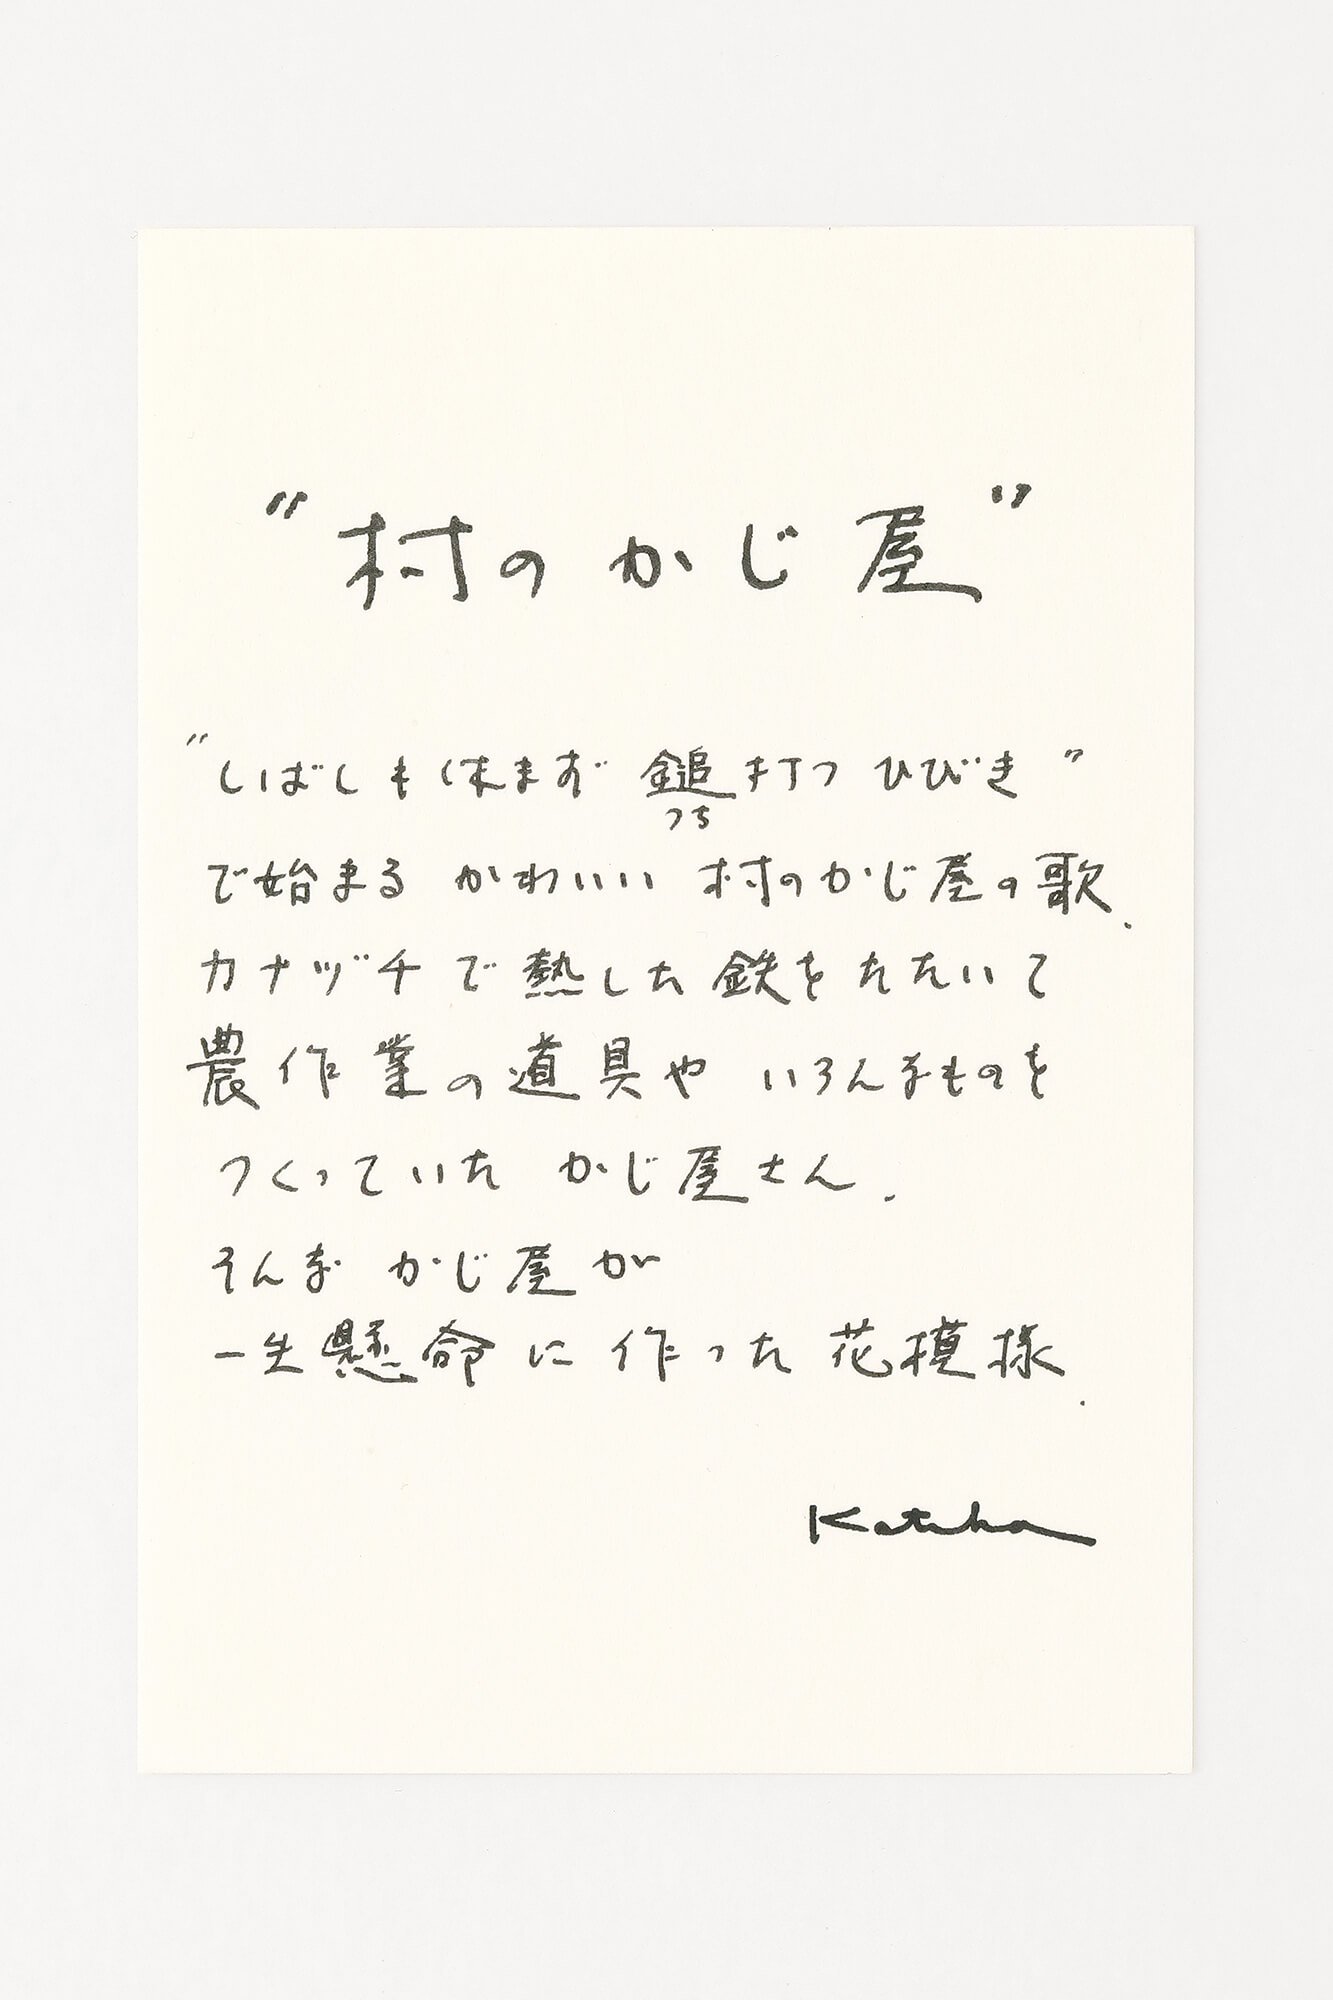 "村のかじ屋"
"しばしも休まず 鎚打つ ひびき"
つち
で始まる かわいい 村のかじ屋の歌.
カナヅチで熱した鉄をたたいて
農作業の道具や いろんなものを
つくっていた かじ屋さん.
そんな かじ屋が
一生懸命に作った花模様.